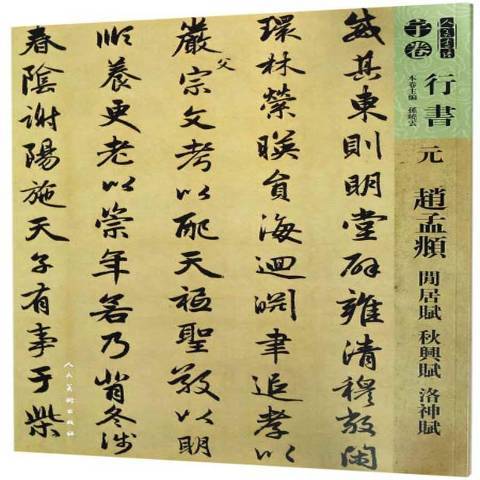 人美書譜
宇卷
行書
本卷主編 孫曉雲
元 趙孟頫
閒居賦 秋興賦 洛神賦
威其東則明堂辟雍清穆敞閑
環林縈暎員海迴淵聿追孝以
嚴父宗文考以配天祗聖敬以明
順養更老以崇年若乃背冬涉
春陰謝陽施天子有事于柴
人民美術出版社